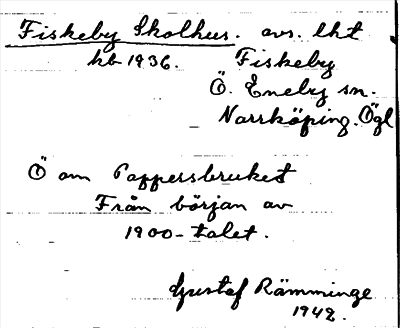 Fiskeby Skolhus. avs. lht
hb 1936. Fiskeby
Ö. Eneby sn.
Norrköping. Ögl
Ö om Pappersbruket
Från början av
1900-talet.
Gustaf Rämminge
1942.